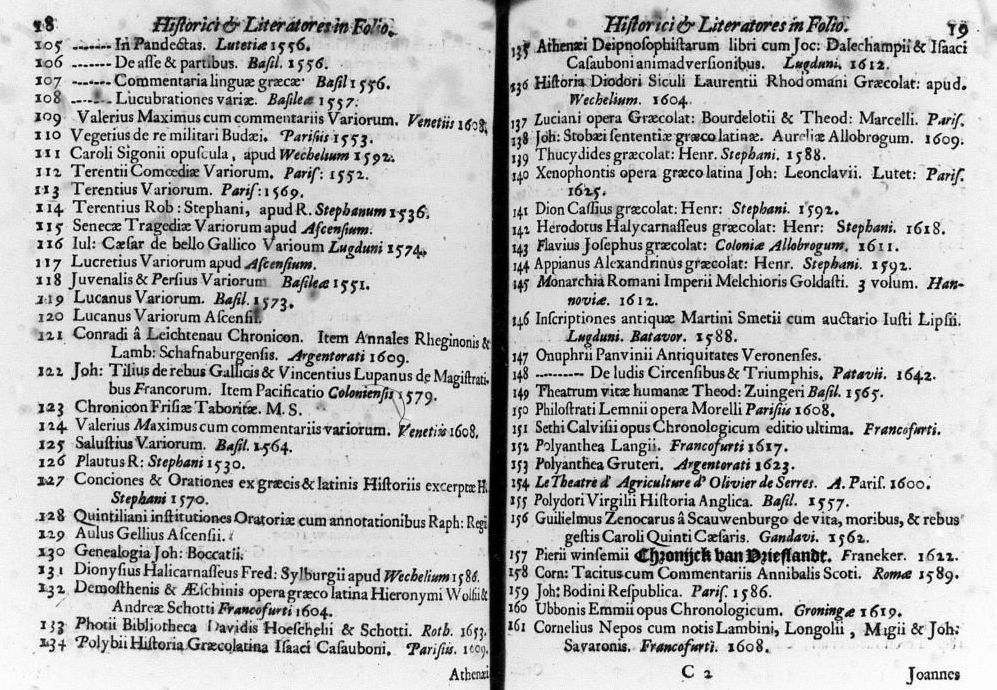 18 Historici & Literatores in Folio.
105 ------- In Pandectas. Lutetiæ 1556.
106 ------- De asse & partibus. Basil. 1556.
107 ------- Commentaria linguæ græcæ Basil 1556.
108 ------- Lucubrationes variæ. Basileæ 1557.
109 Valerius Maximus cum commentariis Variorum. Venetiis 1608.
110 Vegetius de re militari Budæi. Parisiis 1553.
111 Caroli Sigonii opuscula, apud Wechelium 1592.
112 Terentii Comœdiæ Variorum. Paris: 1552.
113 Terentius Variorum. Paris: 1569.
114 Terentius Rob: Stephani, apud R. Stephanum 1536.
115 Senecæ Tragediæ Variorum apud Ascensium.
116 Iul: Cæsar de bello Gallico Varioum Lugduni 1574.
117 Lucretius Variorum apud Ascensium.
118 Juvenalis & Persius Variorum Basileæ 1551.
119 Lucanus Variorum. Basil. 1573.
120 Lucanus Variorum Ascensii.
121 Conradi â Leichtenau Chronicon. Item Annales Rheginonis &
Lamb: Schafnaburgensis. Argentorati 1609.
122 Joh: Tilius de rebus Gallicis & Vincentius Lupanus de Magistrati.
bus Francorum. Item Pacificatio Coloniensis 1579.
123 Chronicon Frisiæ Taboritæ. M. S.
124 Valerius Maximus cum commentariis variorum. Venetiis 1608.
125 Salustius Variorum. Basil. 1564.
126 Plautus R: Stephani 1530.
127 Conciones & Orationes ex græcis & latinis Historiis excerptæ H.
Stephani 1570.
128 Quintiliani institutiones Oratoriæ cum annotationibus Raph: Regi
129 Aulus Gellius Ascensii.
130 Genealogia Joh: Boccatii.
131 Dionysius Halicarnasseus Fred: Sylburgii apud Wechelium 1586.
132 Demosthenis & Æschinis opera græco latina Hieronymi Wolfii &
Andreæ Schotti Francofurti 1604.
133 Photii Bibliotheca Davidis Hoeschelii & Schotti. Roth. 1653.
134 Polybii Historia Græcolatina Isaaci Casauboni. Parisiis. 1609.
Athenæi
Historici & Literatores in Folio. 19
135 Athenæi Deipnosophistarum libri cum Joc: Dalechampii & Isaaci
Casauboni animadversionibus. Lugduni. 1612.
136 Historia Diodori Siculi Laurentii Rhodomani Græcolat: apud.
Wechelium. 1604.
137 Luciani opera Græcolat: Bourdelotii & Theod: Marcelli. Paris.
138 Joh: Stobæi sententiæ græco latinæ. Aureliæ Allobrogum. 1609.
139 Thucydides græcolat: Henr. Stephani. 1588.
140 Xenophontis opera græco latina Joh: Leonclavii. Lutet: Paris.
1625.
141 Dion Cassius græcolat: Henr: Stephani. 1592.
142 Herodotus Halycarnasseus græcolat: Henr: Stephani. 1618.
143 Flavius Josephus græcolat: Coloniæ Allobrogum. 1611.
144 Appianus Alexandrinus græcolat: Henr. Stephani. 1592.
145 Monarchia Romani Imperii Melchioris Goldasti. 3 volum. Han-
noviæ. 1612.
146 Inscriptiones antiquæ Martini Smetii cum auctario Iusti Lipsii.
Lugduni. Batavor. 1588.
147 Onuphrii Panvinii Antiquitates Veronenses.
148 --------- De ludis Circensibus & Triumphis. Patavii. 1642.
149 Theatrum vitæ humanæ Theod: Zuingeri Basil. 1565.
150 Philostrati Lemnii opera Morelli Parisiis 1608.
151 Sethi Calvisii opus Chronologicum editio ultima. Francofurti.
152 Polyanthea Langii. Francofurti 1617.
153 Polyanthea Gruteri. Argentorati 1623.
154 Le Theatre d' Agriculture d' Olivier de Serres. A. Paris. 1600.
155 Polydori Virgilii Historia Anglica. Basil. 1557.
156 Guilielmus Zenocarus â Scauwenburgo de vita, moribus, & rebus
gestis Caroli Quinti Cæsaris. Gandavi. 1562.
157 Pierii winsemii Chronijck van Vrieslandt. Franeker. 1622.
158 Corn: Tacitus cum Commentariis Annibalis Scoti. Romæ 1589.
159 Joh: Bodini Respublica. Paris. 1586.
160 Ubbonis Emmii opus Chronologicum. Groningæ 1619.
161 Cornelius Nepos cum notis Lambini, Longolii, Magii & Joh:
Savaronis. Francofurti. 1608.
C 2 Joannes